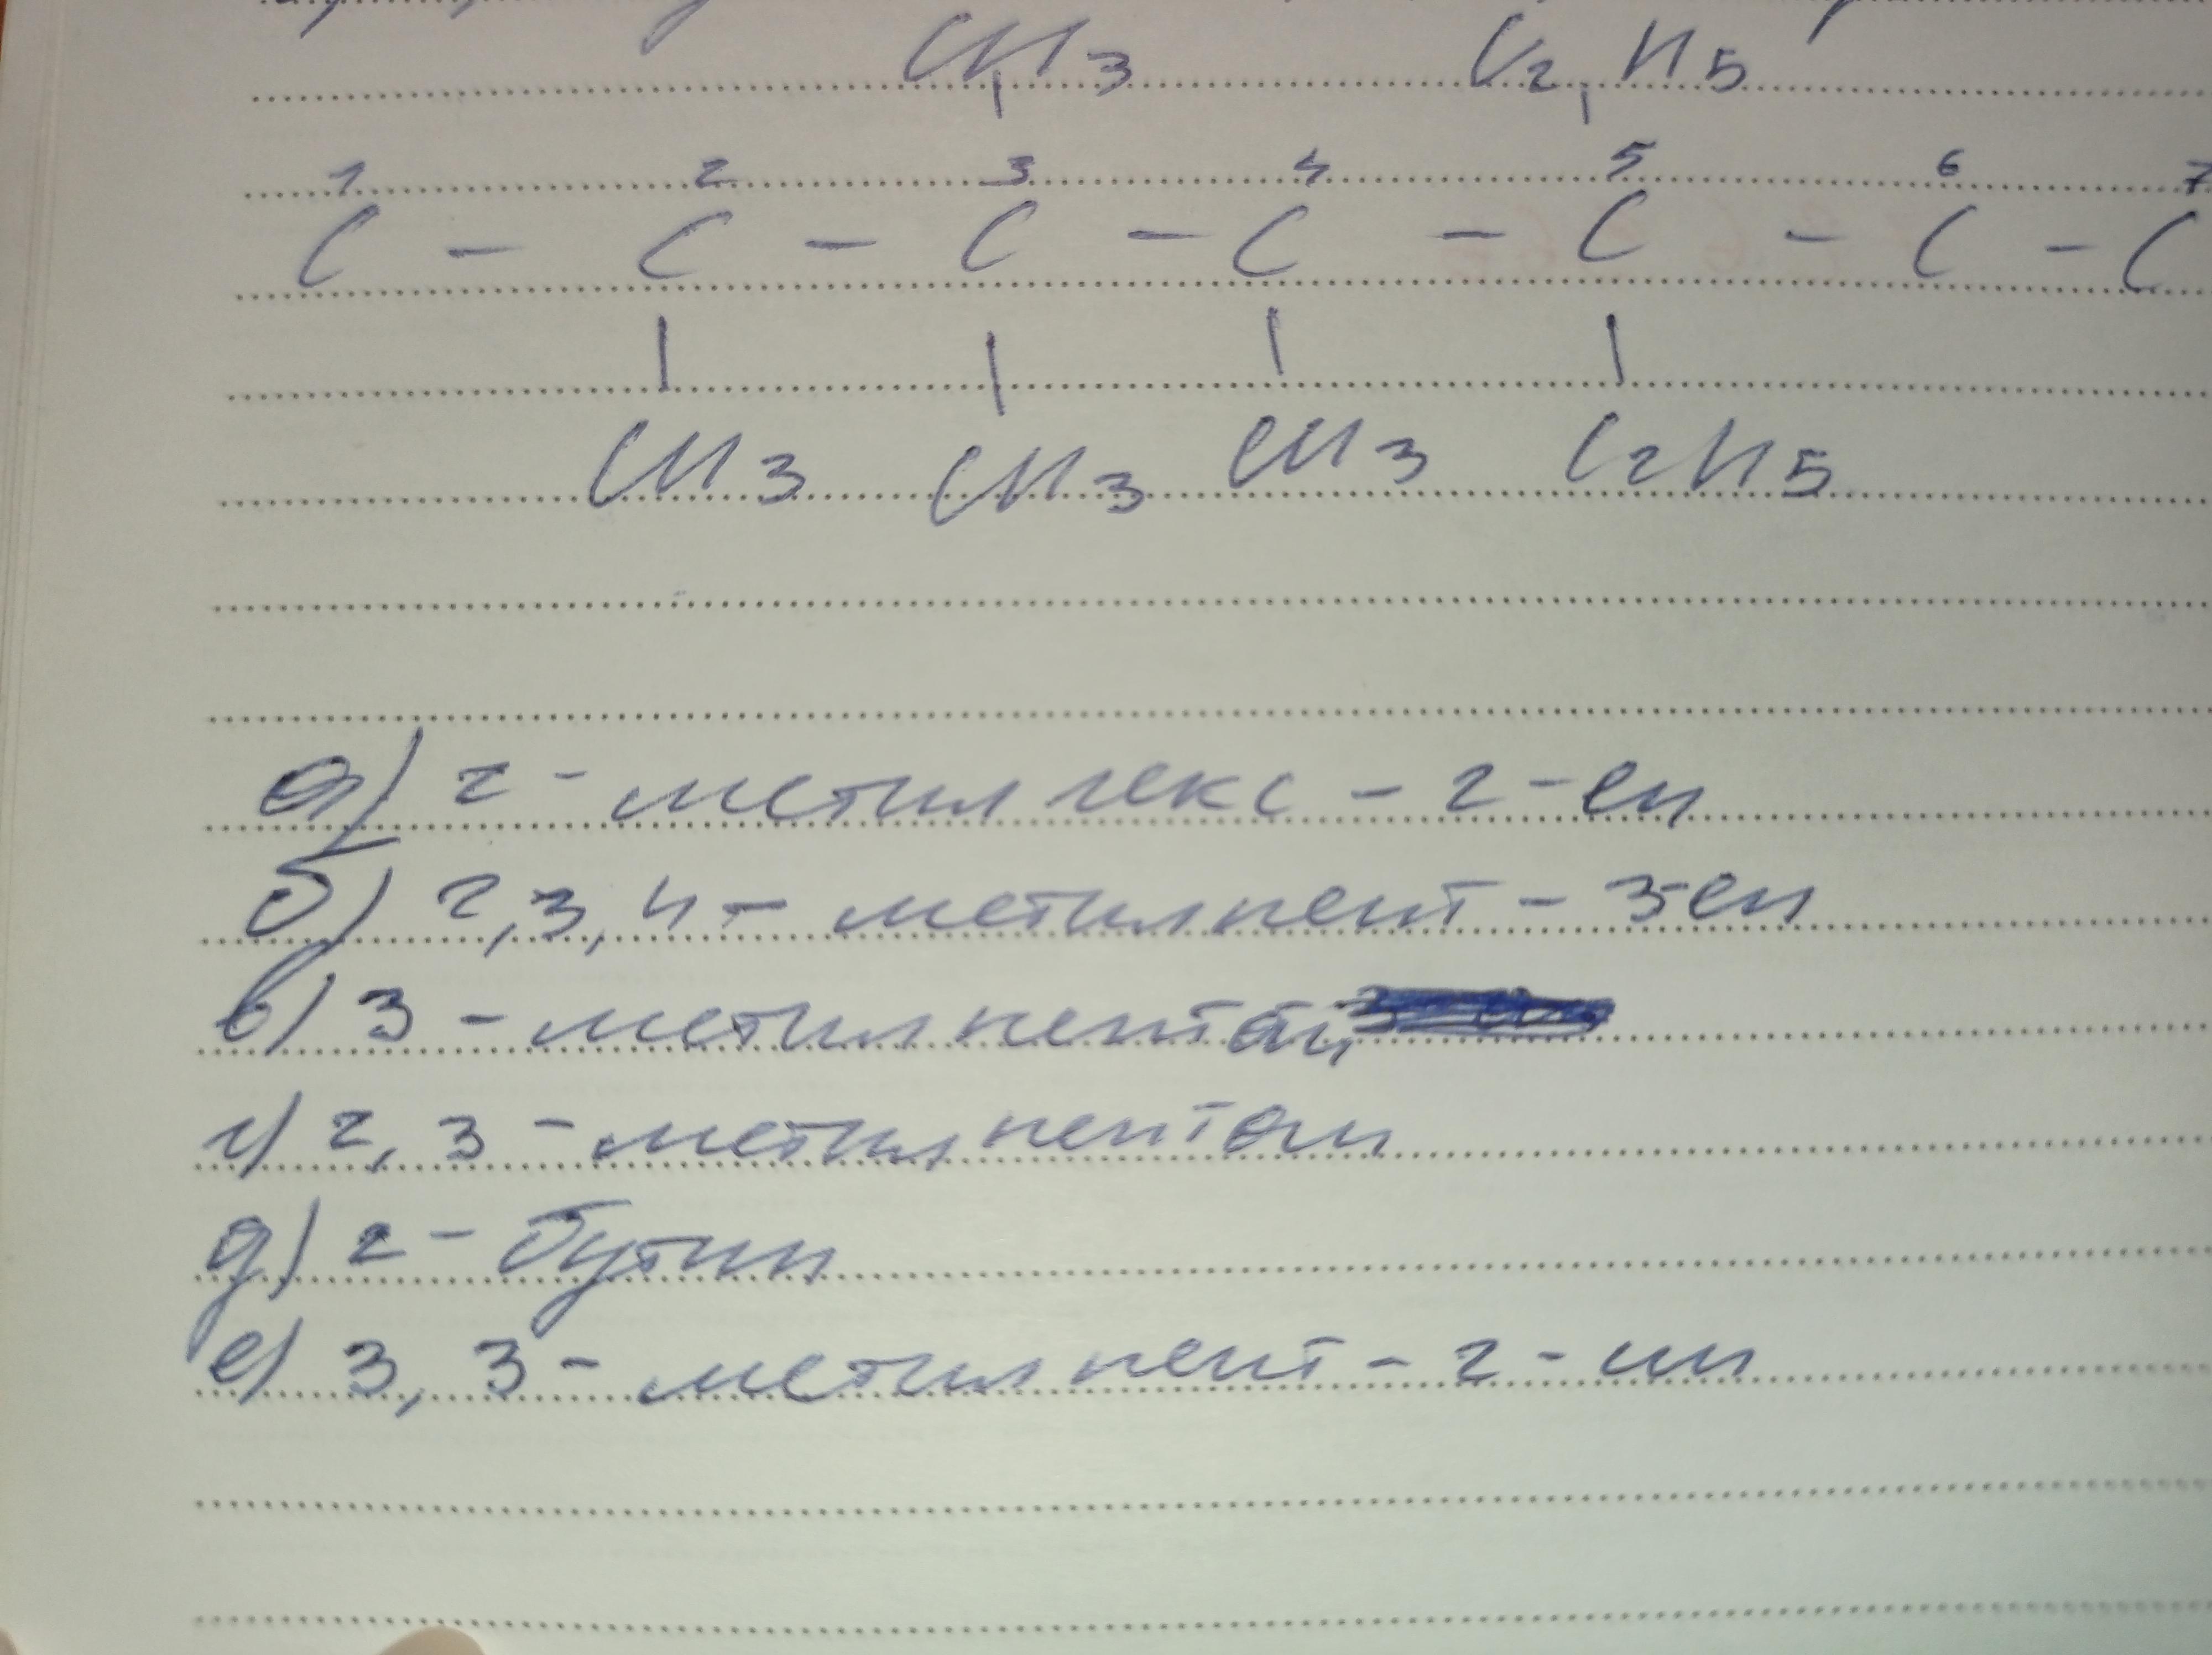 CH3 C2H5
1 2 3 4 5 6 7
C - C - C - C - C - C - C
CH3 CH3 CH3 C2H5
а) 2 - метилгекс - 2 - ен
б) 2,3,4 - метилпент - 3-ен
в) 3 - метилпентан
г) 2,3 - метилпентан
д) 2 - бутин
е) 3,3 - метилпент - 2 - ин